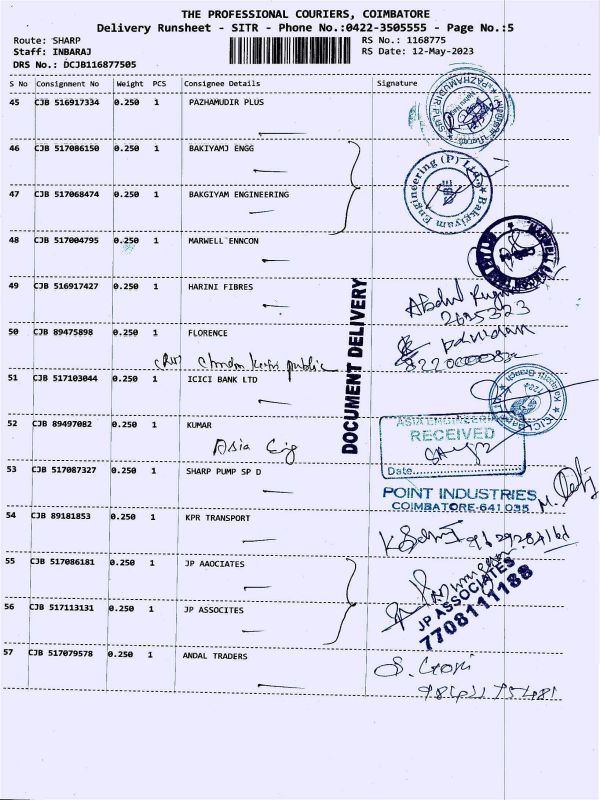 THE PROFESSIONAL COURIERS, COIMBATORE
Delivery Runsheet - SITR - Phone No.:0422-3505555 - Page No.:5
Route: SHARP RS No.: 1168775
Staff: INBARAJ RS Date: 12-May-2023
DRS No.: DCJB116877505
S No Consignment No Weight PCS Consignee Details Signature
45 CJB 516917334 0.250 1 PAZHAMUDIR PLUS
46 CJB 517086150 0.250 1 BAKIYAMJ ENGG
47 CJB 517068474 0.250 1 BAKGIYAM ENGINEERING
Bakgiyam Engineering (P) Ltd
48 CJB 517004795 0.250 1 MARWELL ENNCON
49 CJB 516917427 0.250 1 HARINI FIBRES
Abdul
2695323
50 CJB 89475898 0.250 1 FLORENCE
public
51 CJB 517103044 0.250 1 ICICI BANK LTD
52 CJB 89497082 0.250 1 KUMAR
Asia Eng
DOCUMENT DELIVERY
ASIA ENGINEERING
RECEIVED
Date
53 CJB 517087327 0.250 1 SHARP PUMP SP D
POINT INDUSTRIES
COIMBATORE-641 035
54 CJB 89181853 0.250 1 KPR TRANSPORT
55 CJB 517086181 0.250 1 JP AAOCIATES
56 CJB 517113131 0.250 1 JP ASSOCITES
JP ASSOCIATES
7708111188
57 CJB 517079578 0.250 1 ANDAL TRADERS
S. Gopi